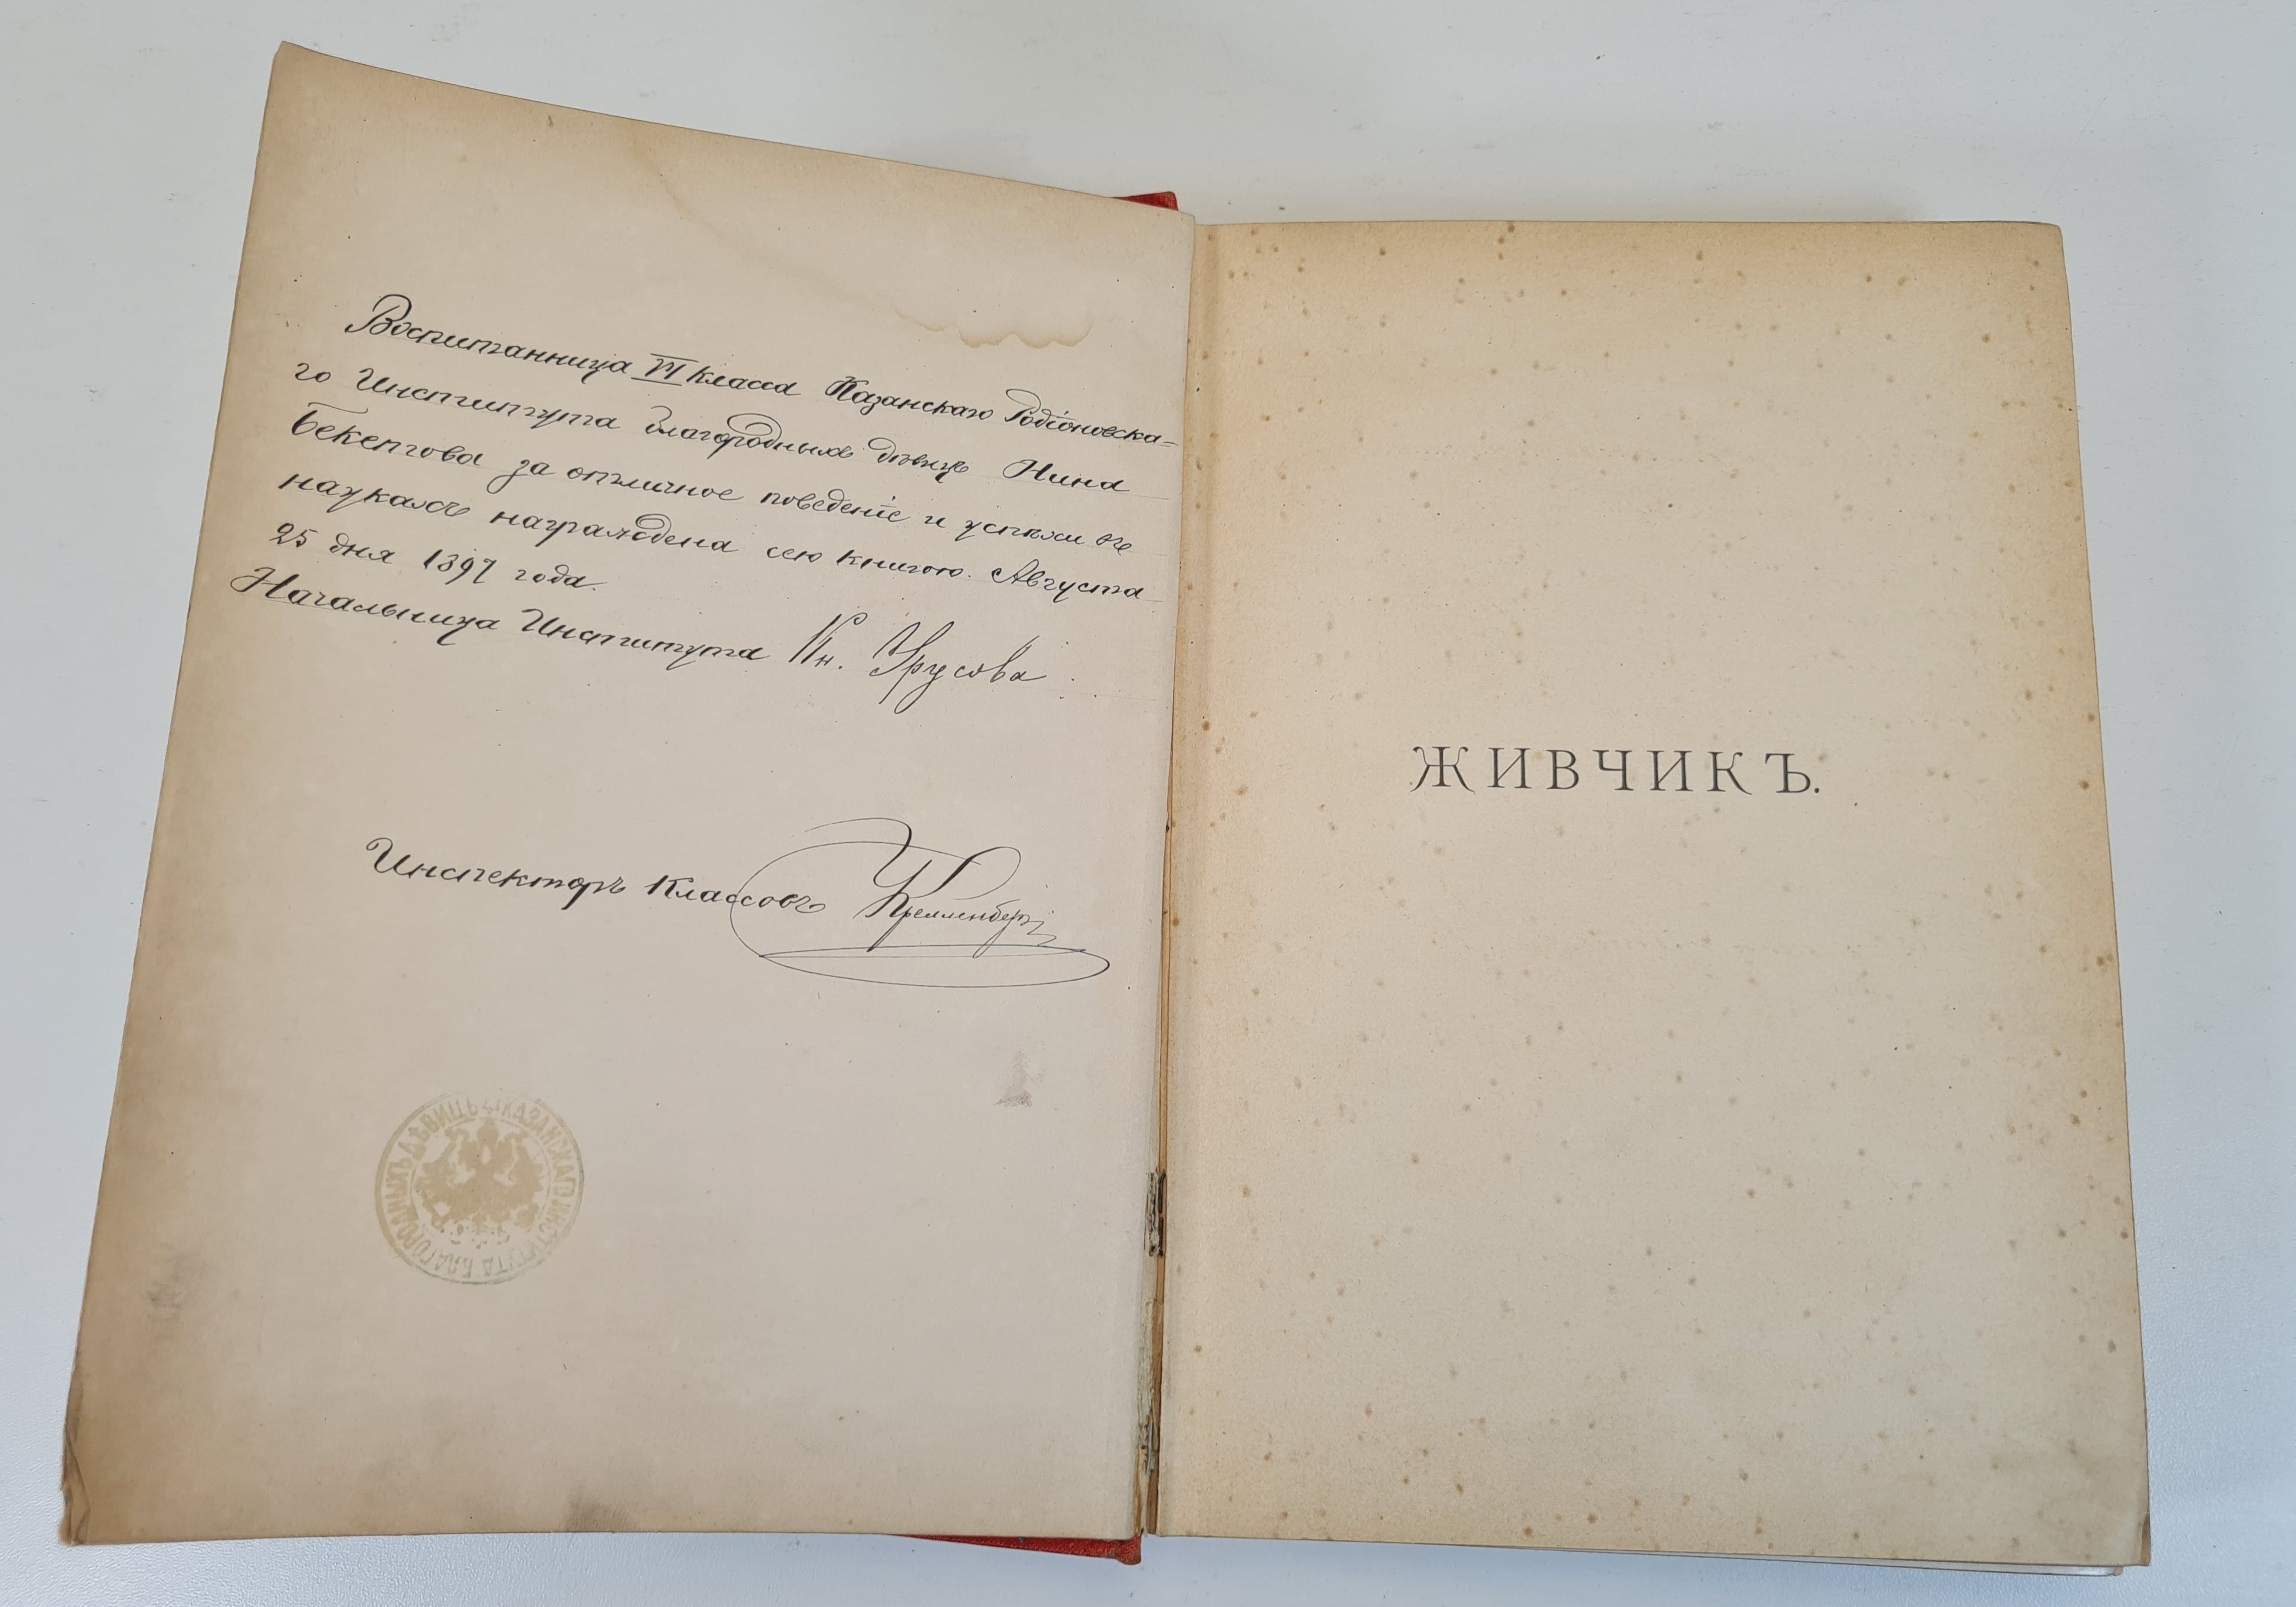 Воспитанница VI класса Казанскаго Родіоновска-
го Института благородныхъ дѣвицъ Нина
Бекетова за отличное поведеніе и успѣхи въ
наукахъ награждена сею книгою. Августа
25 дня 1897 года.
Начальница Института Кн. Урусова
Инспекторъ Классовъ
КАЗАНСКАГО ИНСТИТУТА БЛАГОРОДНЫХЪ ДѢВИЦЪ
ЖИВЧИКЪ.